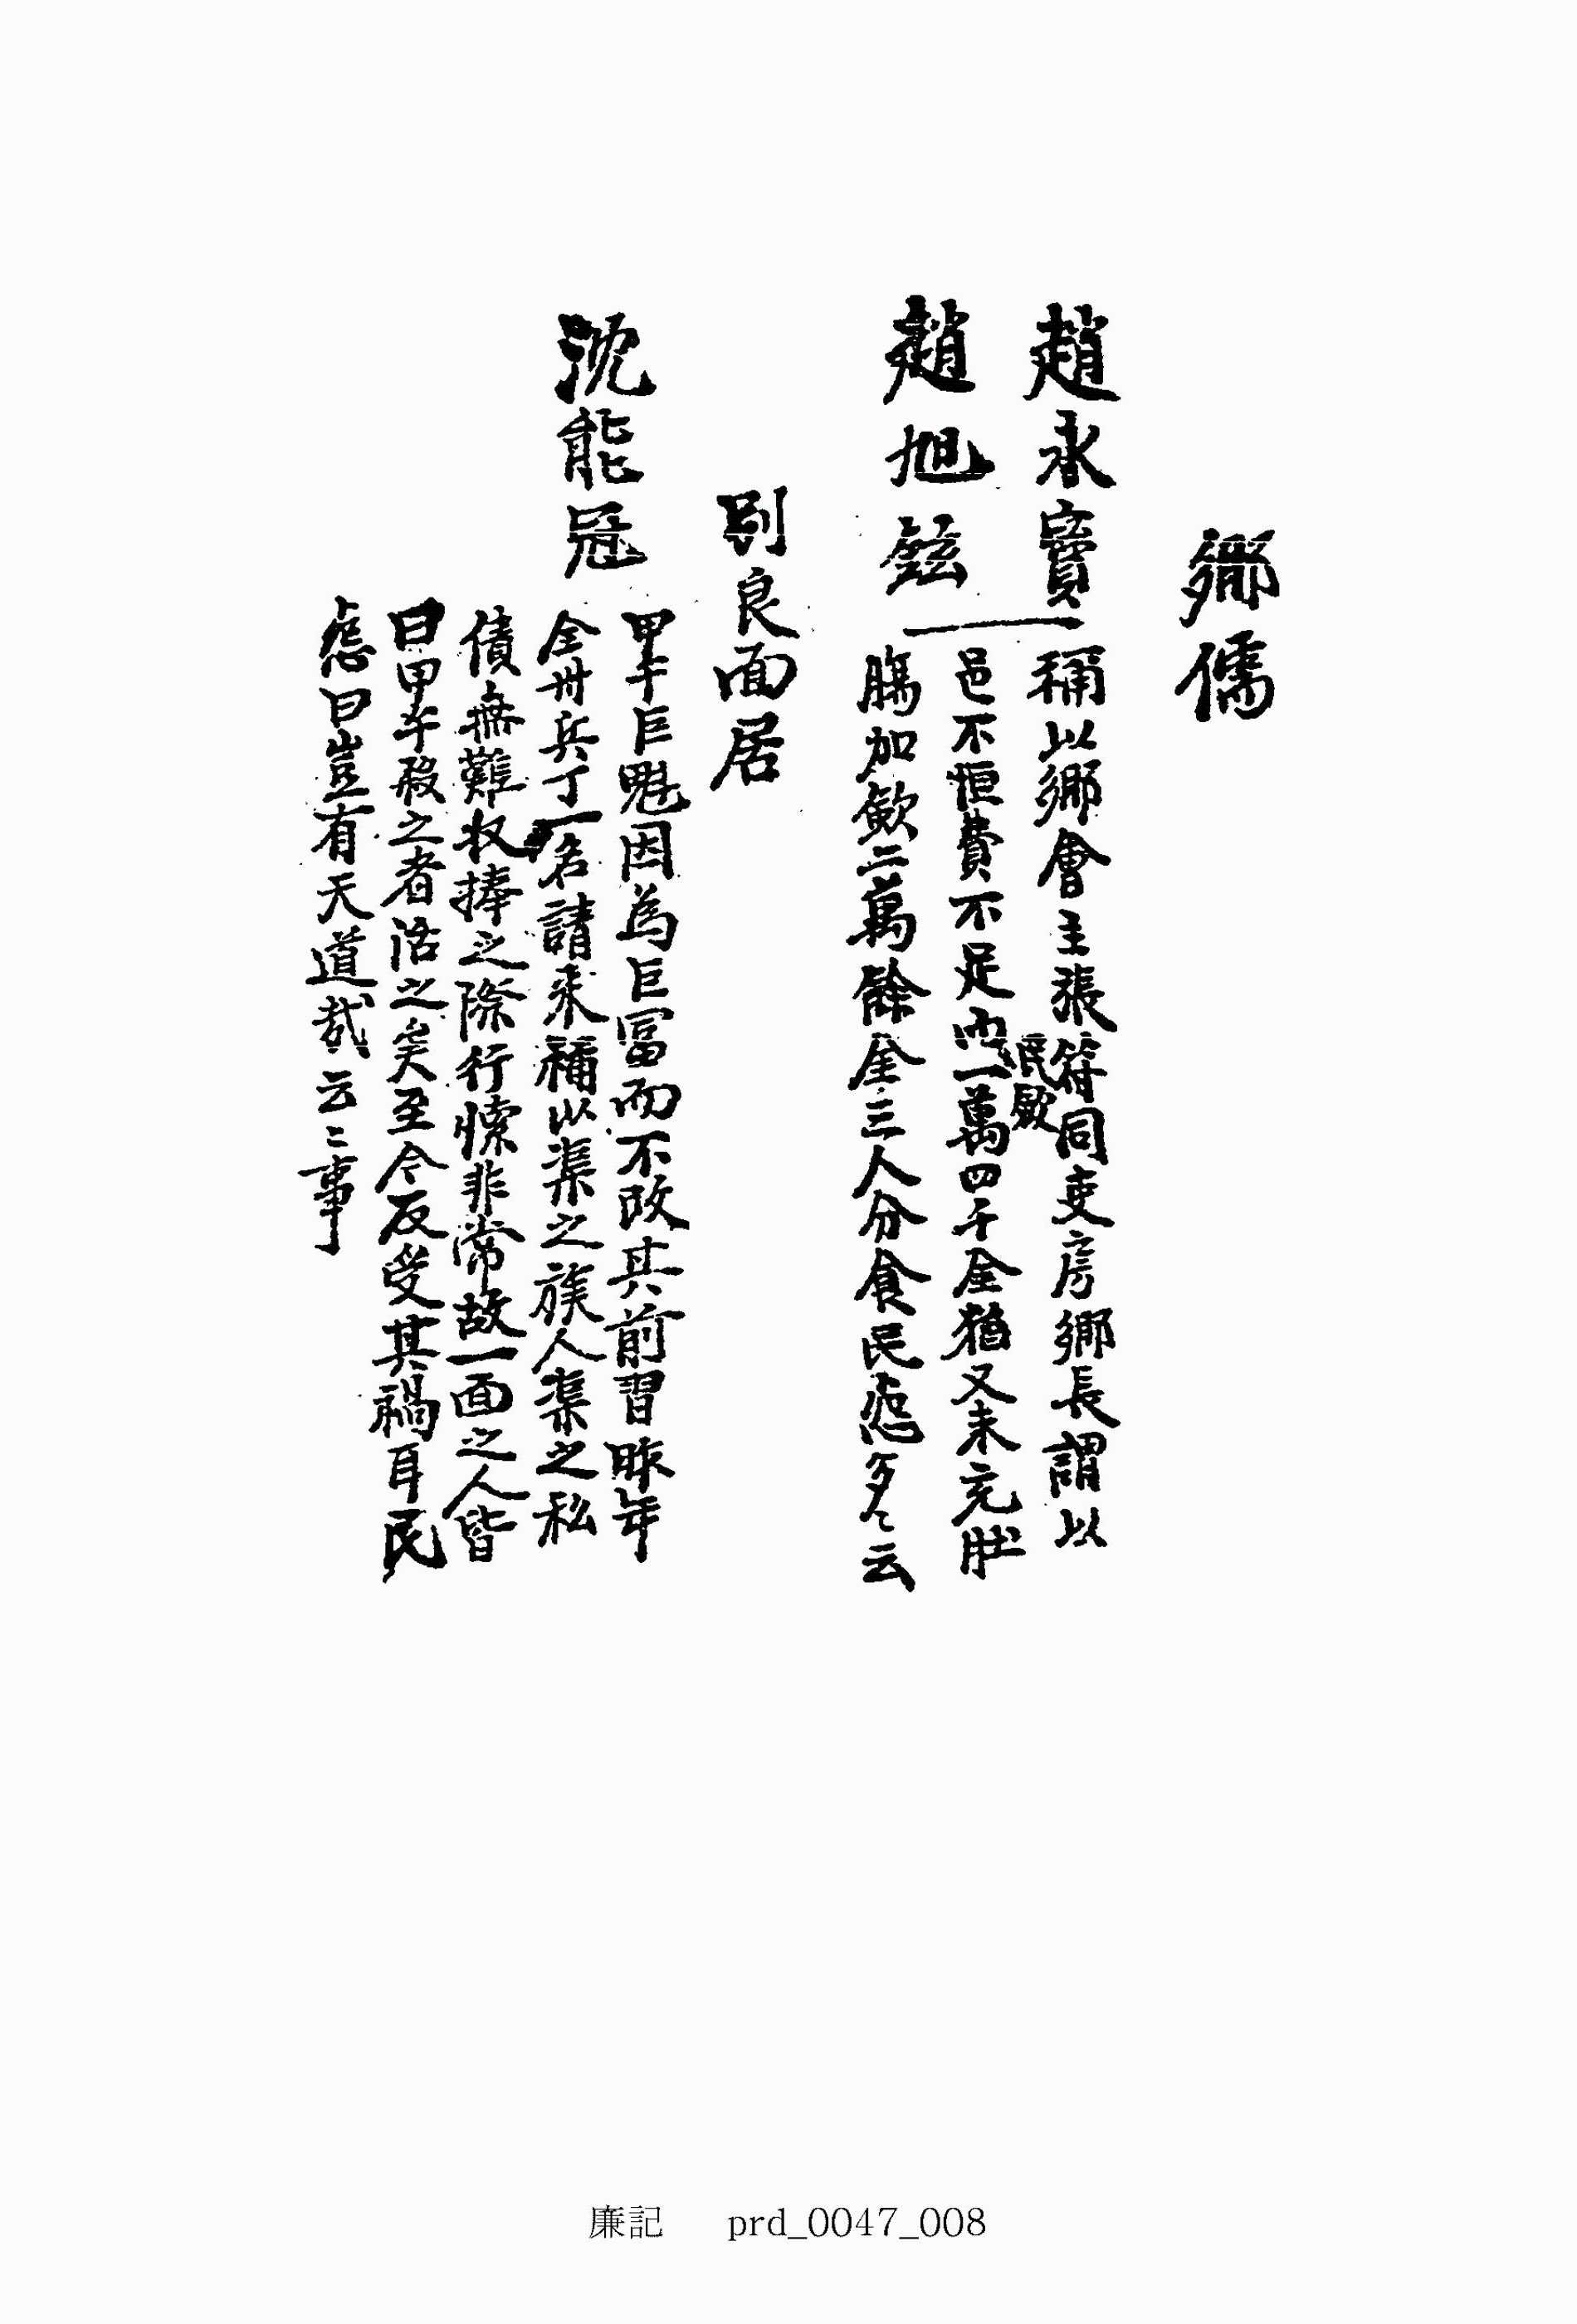 鄕儒
趙永寶
趙旭鉉
稱以鄕會主張符同吏房鄕長謂以
民斂
邑不恒費不足而一萬四千金猶又未充肚
膓加歛二萬餘金三人分食民怨多々云
別良面居
沈能冠
甲午巨魁因爲巨冨而不改其前習昨年
全州兵丁一名請來稱以渠之族人渠之私
債無難收捧之際行悖非常故一面之人皆
曰甲午殺之者活之矣至今反受其禍耳民
怨曰豈有天道哉云〻事
廉記 prd_0047_008